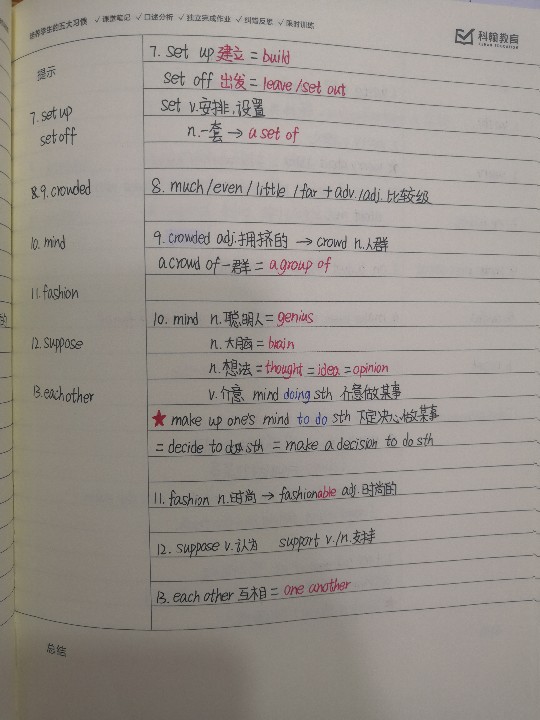 培养学生的五大习惯 ✓课堂笔记 ✓口述分析 ✓独立完成作业 ✓纠错反思 ✓限时训练
科翰教育
提示
7. set up 建立 = build
set off 出发 = leave / set out
7. set up
set v.安排,设置
set off
n.一套 → a set of
8. much/even/little/far + adv./adj. 比较级
&9. crowded
9. crowded adj.拥挤的 → crowd n.人群
10. mind
a crowd of 一群 = a group of
11. fashion
10. mind n.聪明人 = genius
12. suppose
n.大脑 = brain
n.想法 = thought = idea = opinion
13. each other
v.介意 mind doing sth 介意做某事
★ make up one's mind to do sth 下定决心做某事
= decide to do sth = make a decision to do sth
11. fashion n.时尚 → fashionable adj.时尚的
12. suppose v.认为 support v./n.支持
13. each other 互相 = one another
总结